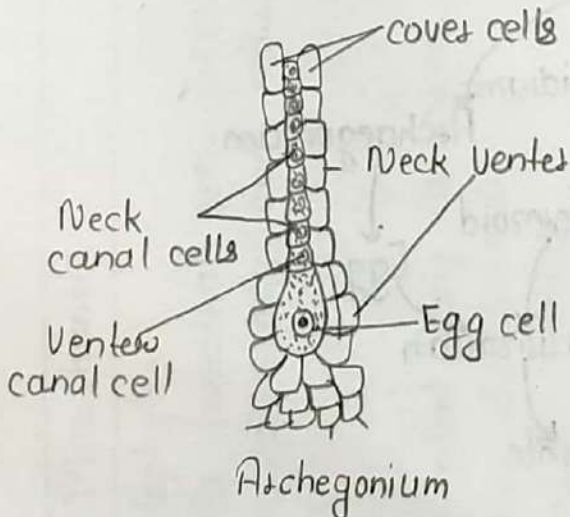 cover cells
Neck Venter
Neck
canal cells
Egg cell
Venter
canal cell
Archegonium